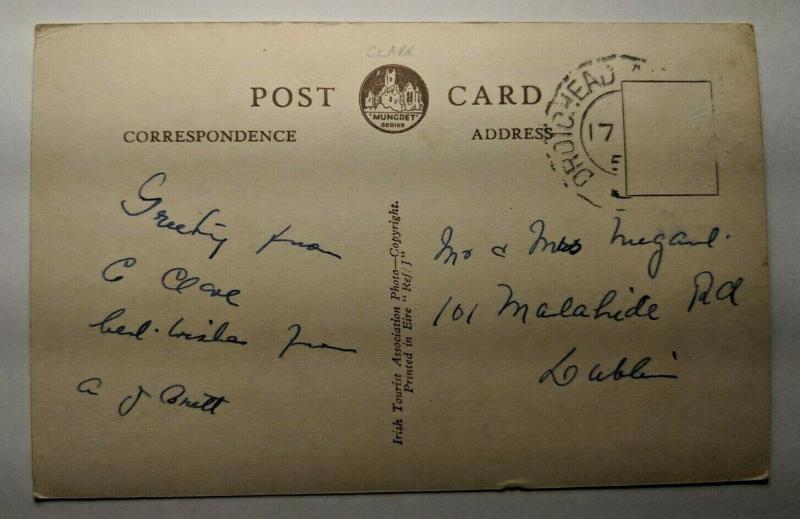 CLARE
POST CARD
"MUNGRET"
SERIES
CORRESPONDENCE
ADDRESS
DROICHEAD
17
E
Greeting from
C Clare
best wishes from
A J Brett
Irish Tourist Association Photo—Copyright.
Printed in Eire "Ref/J"
Mr & Mrs
101 Malahide Rd
Dublin